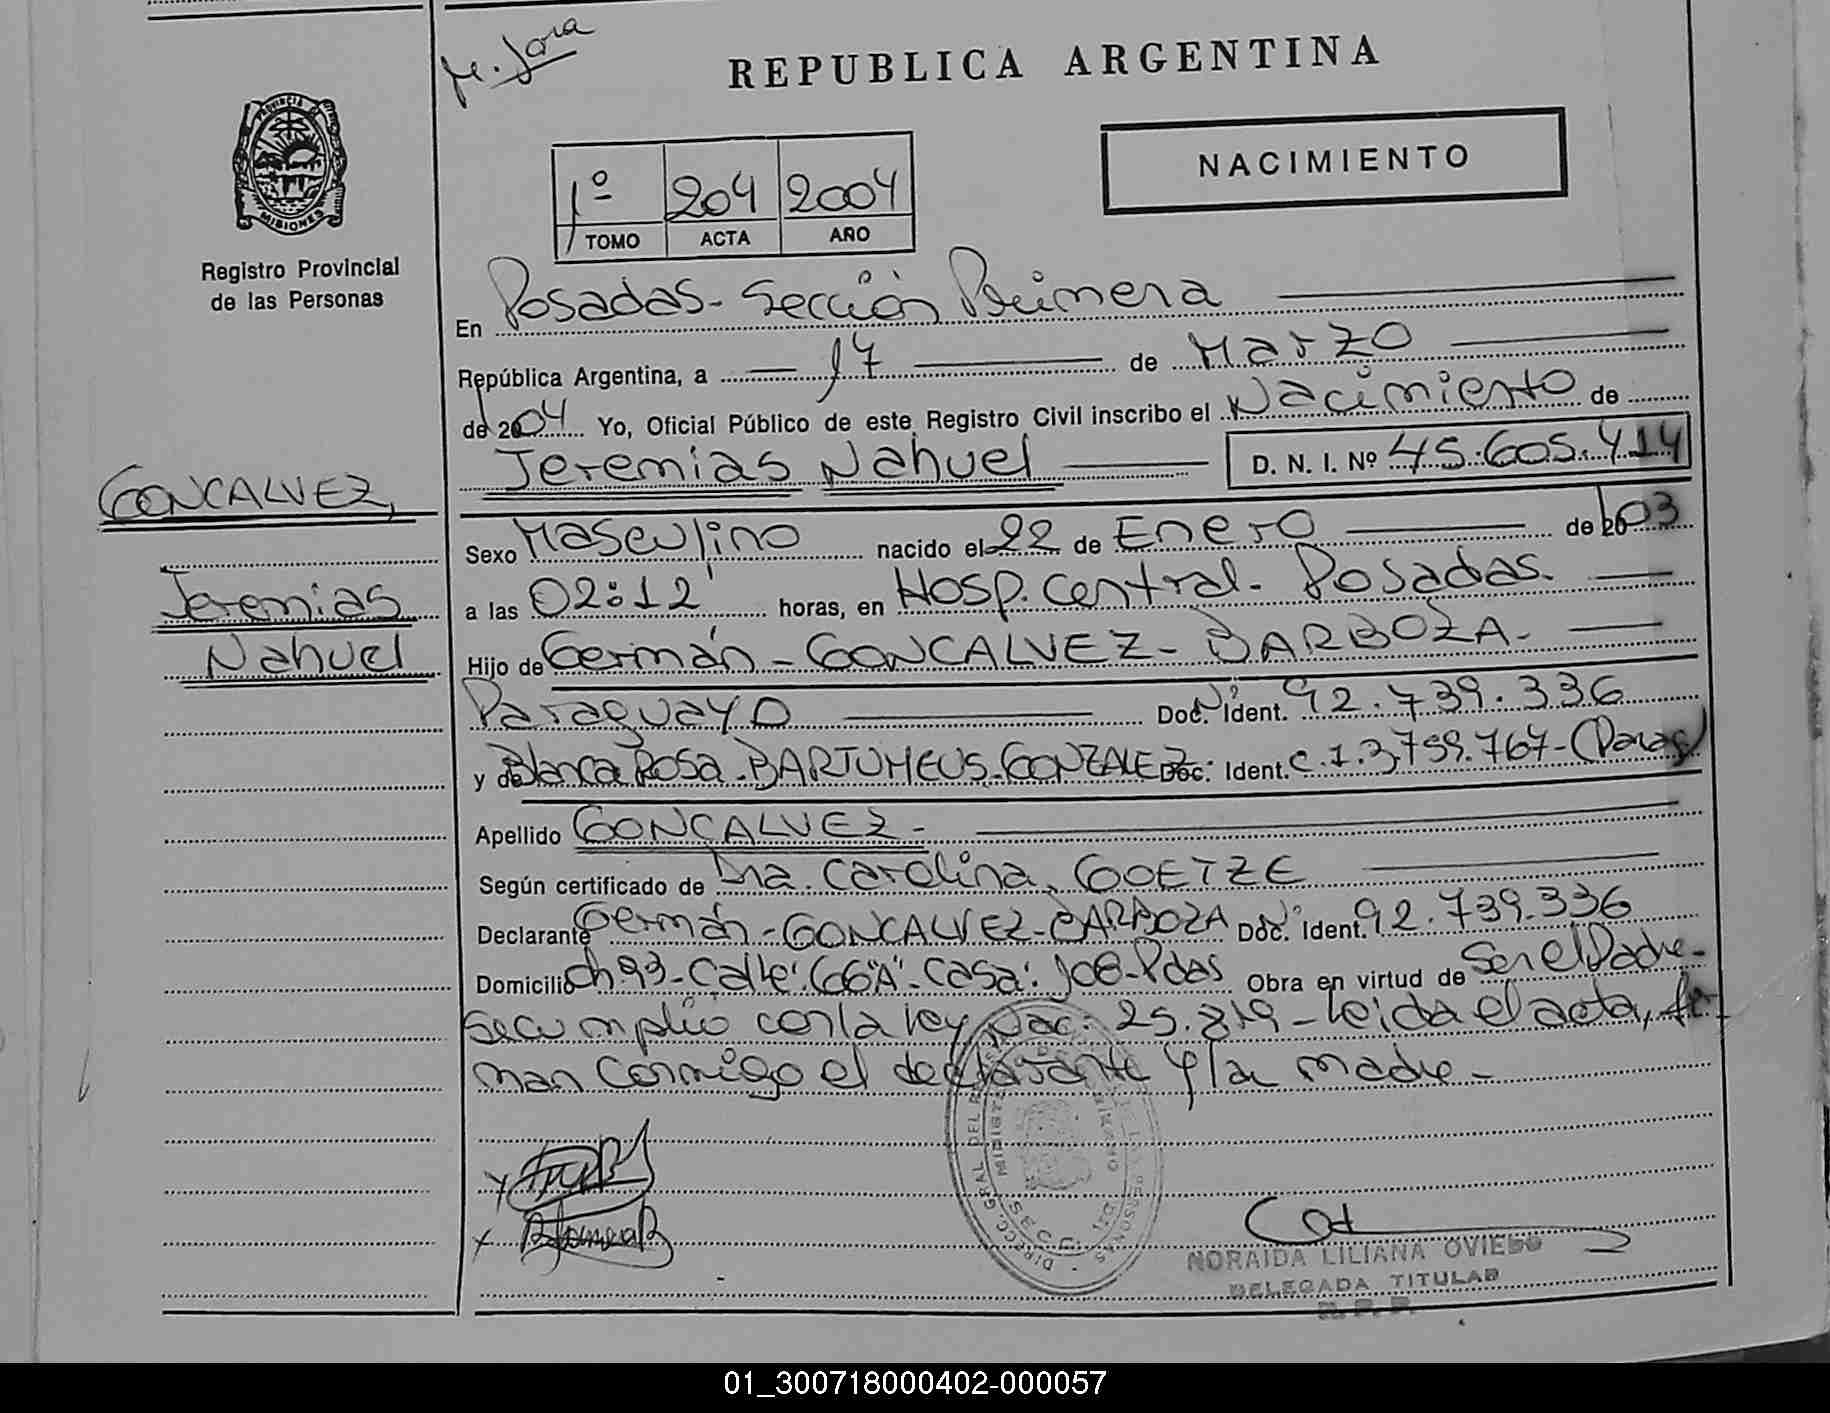 M. Jara
REPUBLICA ARGENTINA
NACIMIENTO
PROVINCIA DE
MISIONES
Registro Provincial
de las Personas
1º 204 2004
TOMO ACTA AÑO
En Posadas - Sección Primera
República Argentina, a 17 de Marzo
de 2004 Yo, Oficial Público de este Registro Civil inscribo el Nacimiento de
Jeremias Nahuel D. N. I. Nº 45.605.414
GONCALVEZ,
Jeremias
Nahuel
Sexo Masculino nacido el 22 de Enero de 2003
a las 02:12' horas, en Hosp. Central - Posadas.
Hijo de Germán - GONCALVEZ - BARBOZA -
Paraguayo Doc. Nº Ident. 92.739.336
y de Blanca Rosa - BARTUMEUS - GONZALEZ Doc. Ident. C.I. 3.759.767 - (Parag)
Apellido GONCALVEZ -
Según certificado de Dra. Carolina, GOETZE
Declarante Germán - GONCALVEZ - BARBOZA Doc. Nº Ident. 92.739.336
Domicilio Ch 93 - Calle: 66"A" - Casa: 108 - Pdas Obra en virtud de Ser el Padre -
Se cumplió con la ley Nac. 25.819 - Leida el acta, fir
man conmigo el declarante y la madre -
NORAIDA LILIANA OVIEDO
DELEGADA TITULAR
R. P. P.
01_300718000402-000057